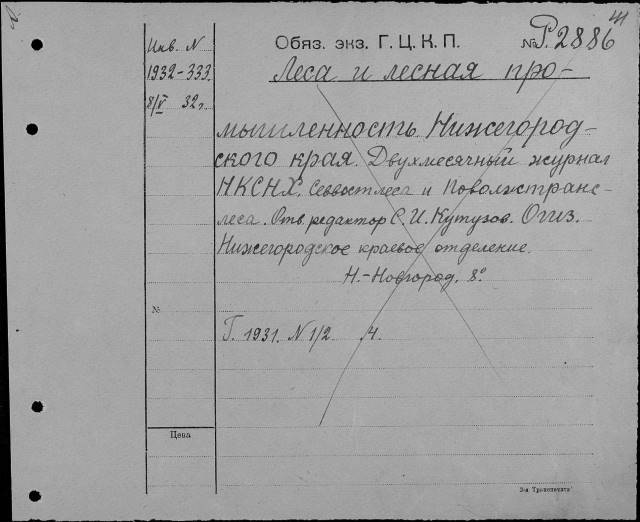 41
Инв. N
1932-333.
8/V 32 г.
Обяз. экз. Г. Ц. К. П.
№ Р2886
Леса и лесная про-
мышленность Нижегород-
ского края. Двухмесячный журнал
НКСНХ, Севвостлеса и Поволжтранс-
леса. Отв. редактор С. И. Кутузов. Огиз.
Нижегородское краевое отделение.
Н.-Новгород. 8°.
№
Г. 1931. N 1/2. /4.
Цена
3-я Транспечать